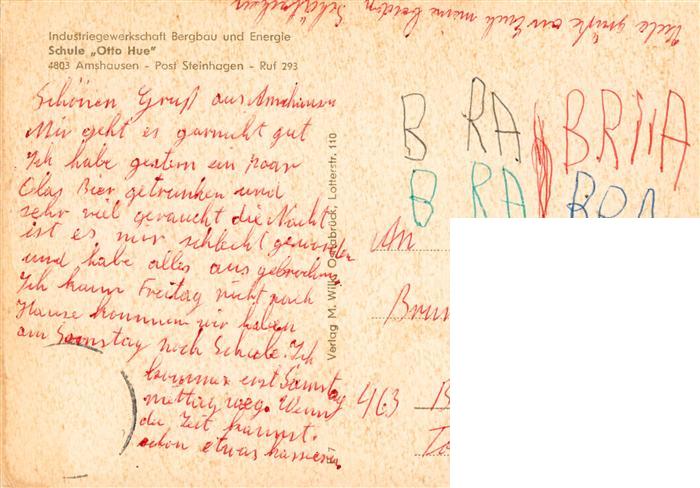 Viele grüße an Euch meine beiden Schätzchen
Industriegewerkschaft Bergbau und Energie
Schule „Otto Hue"
4803 Amshausen - Post Steinhagen - Ruf 293
Schönen Gruß aus Amshausen
Mir geht es garnicht gut
Ich habe gestern ein paar
Glas Bier getrunken und
sehr viel geraucht die Nacht
ist es mir schlecht geworden
und habe alles aus gebrochen
Ich kann Freitag nicht nach
Hause kommen wir haben
am Samstag noch Schule. Ich
komme erst Samstag
mittag weg. Wenn
du Zeit kannst.
schon etwas kassieren.
Verlag M. Wilks Osnabrück, Lotterstr. 110
B RA BRIIA
B RA BRA
An
463 B